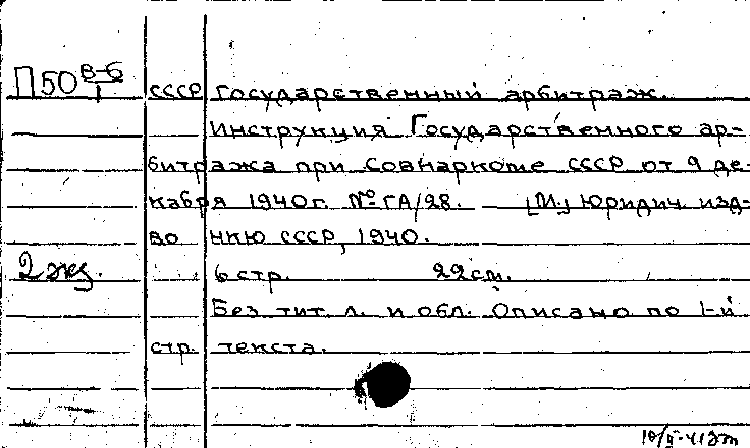 П50 В-6
1
СССР Государственный арбитраж.
Инструкция Государственного ар-
битража при Совнаркоме СССР от 9 де-
кабря 1940г. № ГА/28. [М.] Юридич. изд-
во НКЮ СССР, 1940.
2 экз. 6 стр. 22 см.
Без тит. л. и обл. Описано по 1-й
стр. текста.